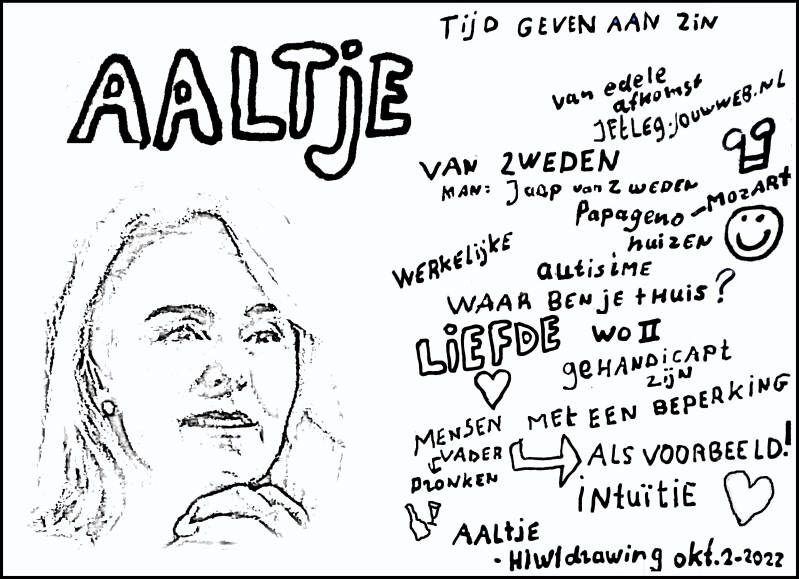 AALTJE
TijD GEVEN AAN ZiN
van edele
afkomst
JETLEG.JOUWWEB.NL
VAN ZWEDEN
MAN: Jaap van Zweden
Papageno - MOZART
huizen
WERKELIJKE
autisime
WAAR BEN je tHUiS?
LiEFDE WO II
geHANDiCAPt
ZijN
MENSEN MEt EEN BEPERKiNG
VADER
DRONKEN
ALS VOORBEELD!
iNtuïtiE
AALtjE
- HiWIdrawing okt.2-2022